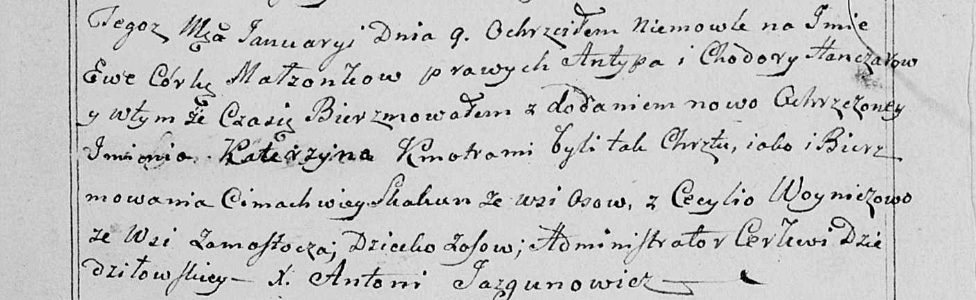 Tegoz Mca Januaryi Dnia 9. Ochrzciłem Niemowle na Imie
Ewe Córkę Małżonkow prawych Antypa i Chodory Hanczarow
y wtym że Czasię Bierzmowałem z dodaniem nowo Ochrzczoney
Imienia Katerzyna Kmotrami byli tak Chrztu, iako i Bierz
mowania Cimachwiey Skakun ze wsi Osow, z Cecylio Woyniczowo
ze Wsi Zamostocza; Dziecko z Osow; Administrator Cerkwi Dzie
dziłowskiey — X. Antoni Jazgunowicz